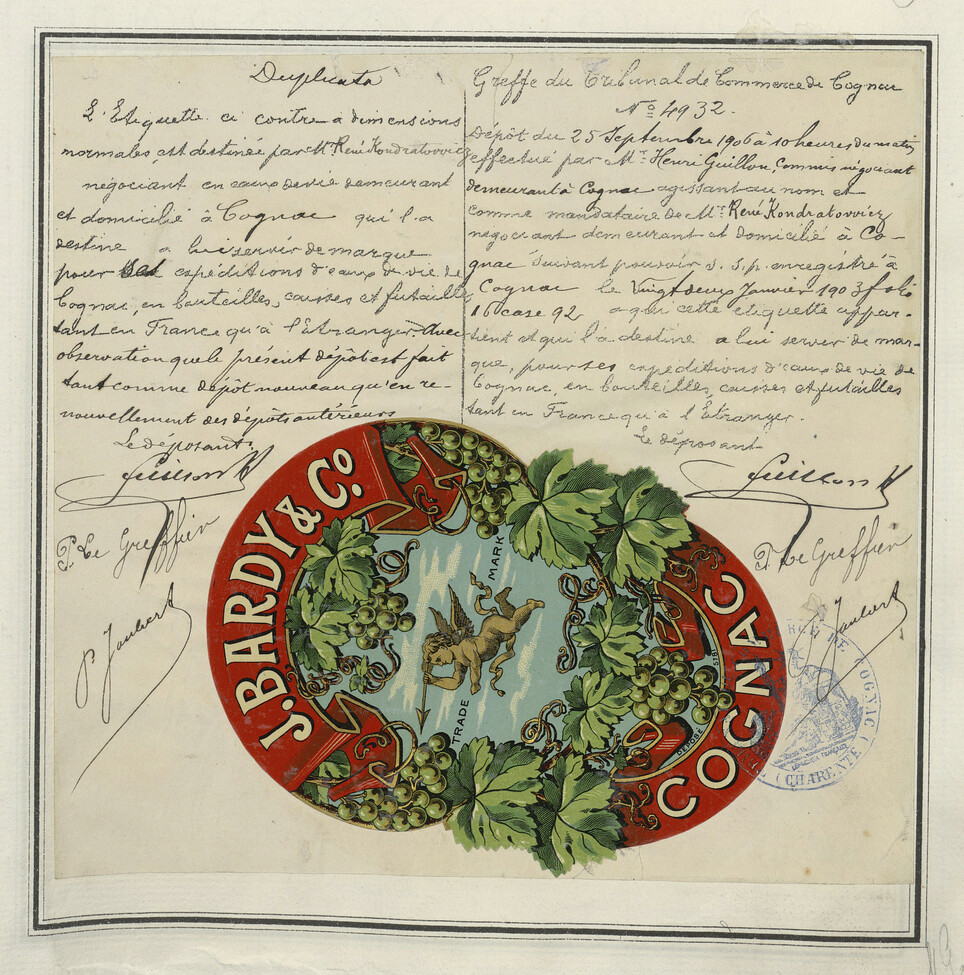 Duplicata
L'Etiquette ci contre à dimensions
normales, est destinée par Mr René Kondratovvicz
négociant en eaux de vie demeurant
et domicilié à Cognac qui l'a
destine a lui servir de marque
pour ses expéditions d'eaux de vie de
Cognac, en bouteilles, caisses et futailles
tant en France qu'à l'Etranger. Avec
observation que le présent dépôt est fait
tant comme dépôt nouveau qu'en re-
nouvellement des dépôts antérieurs
Le déposant
Guillon H
P. Le Greffier
P. Joubert
Greffe du Tribunal de Commerce de Cognac
No 4932.
Dépôt du 25 Septembre 1906 à 10 heures du matin
effectué par Mr Henri Guillon, Commis négociant
demeurant à Cognac agissant au nom et
comme mandataire de Mr René Kondratovvicz
négociant demeurant et domicilié à Co-
gnac suivant pouvoir s. s. p. enregistré à
Cognac le Vingt deux Janvier 1903 folio
16 case 92 a qui cette etiquette appar-
tient et qui l'a destine a lui server de mar-
que, pour ses expeditions d'eaux de vie de
Cognac, en bouteilles, caisses et futailles
tant en France qu'à l'Étranger.
Le déposant
Guillon H
P. Le Greffier
Joubert
J. BARDY & Co.
TRADE MARK
COGNAC
DEPOSE 578
DE COGNAC
(CHARENTE)